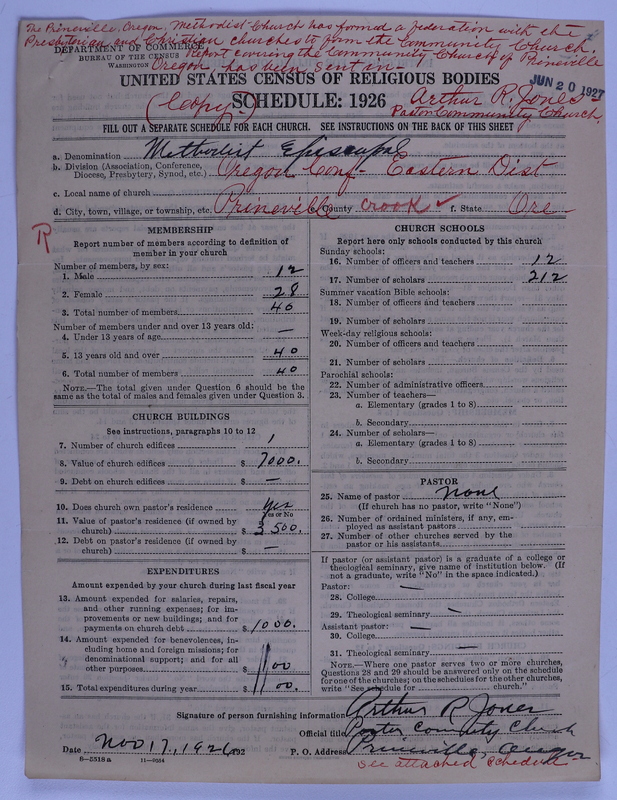 The Prineville, Oregon, Methodist Church has formed a federation with the
Presbyterian and Christian churches to form the Community Church.
Report covering the Community Church of Prineville
Oregon has been sent in-
DEPARTMENT OF COMMERCE
BUREAU OF THE CENSUS
WASHINGTON
UNITED STATES CENSUS OF RELIGIOUS BODIES
JUN 20 1927
(Copy) SCHEDULE: 1926
Arthur R. Jones
Pastor Community Church.
FILL OUT A SEPARATE SCHEDULE FOR EACH CHURCH. SEE INSTRUCTIONS ON THE BACK OF THIS SHEET
a. Denomination Methodist Episcopal
b. Division (Association, Conference, Diocese, Presbytery, Synod, etc.) Oregon Conf- Eastern Dist
c. Local name of church
d. City, town, village, or township, etc. Prineville e. County Crook ✓ f. State Ore-
R
MEMBERSHIP
Report number of members according to definition of
member in your church
Number of members, by sex:
1. Male 12
2. Female 28
3. Total number of members 40
Number of members under and over 13 years old:
4. Under 13 years of age —
5. 13 years old and over 40
6. Total number of members 40
NOTE.—The total given under Question 6 should be the
same as the total of males and females given under Question 3.
CHURCH BUILDINGS
See instructions, paragraphs 10 to 12
7. Number of church edifices 1
8. Value of church edifices $ 7000.
9. Debt on church edifices $ —
10. Does church own pastor's residence Yes
Yes or No
11. Value of pastor's residence (if owned by
church) $ 3500.
12. Debt on pastor's residence (if owned by
church) $ —
EXPENDITURES
Amount expended by your church during last fiscal year
13. Amount expended for salaries, repairs,
and other running expenses; for im-
provements or new buildings; and for
payments on church debt $ 1000.
14. Amount expended for benevolences, in-
cluding home and foreign missions; for
denominational support; and for all
other purposes $ 100
15. Total expenditures during year $ 1100.
CHURCH SCHOOLS
Report here only schools conducted by this church
Sunday schools:
16. Number of officers and teachers 12
17. Number of scholars 212
Summer vacation Bible schools:
18. Number of officers and teachers
19. Number of scholars
Week-day religious schools:
20. Number of officers and teachers
21. Number of scholars
Parochial schools:
22. Number of administrative officers
23. Number of teachers—
a. Elementary (grades 1 to 8)
b. Secondary
24. Number of scholars—
a. Elementary (grades 1 to 8)
b. Secondary
PASTOR
25. Name of pastor None
(If church has no pastor, write "None")
26. Number of ordained ministers, if any, em-
ployed as assistant pastors
27. Number of other churches served by the
pastor or his assistants
If pastor (or assistant pastor) is a graduate of a college or
theological seminary, give name of institution below. (If
not a graduate, write "No" in the space indicated.)
Pastor:
28. College —
29. Theological seminary —
Assistant pastor: —
30. College
31. Theological seminary —
NOTE.—Where one pastor serves two or more churches,
Questions 28 and 29 should be answered only on the schedule
for one of the churches; on the schedules for the other churches,
write "See schedule for church."
Signature of person furnishing information Arthur R Jones
Official title Pastor Community Church
Date Nov 17, 1926, 192 P. O. Address Prineville, Oregon
8-5518a 11-9054
See attached schedule